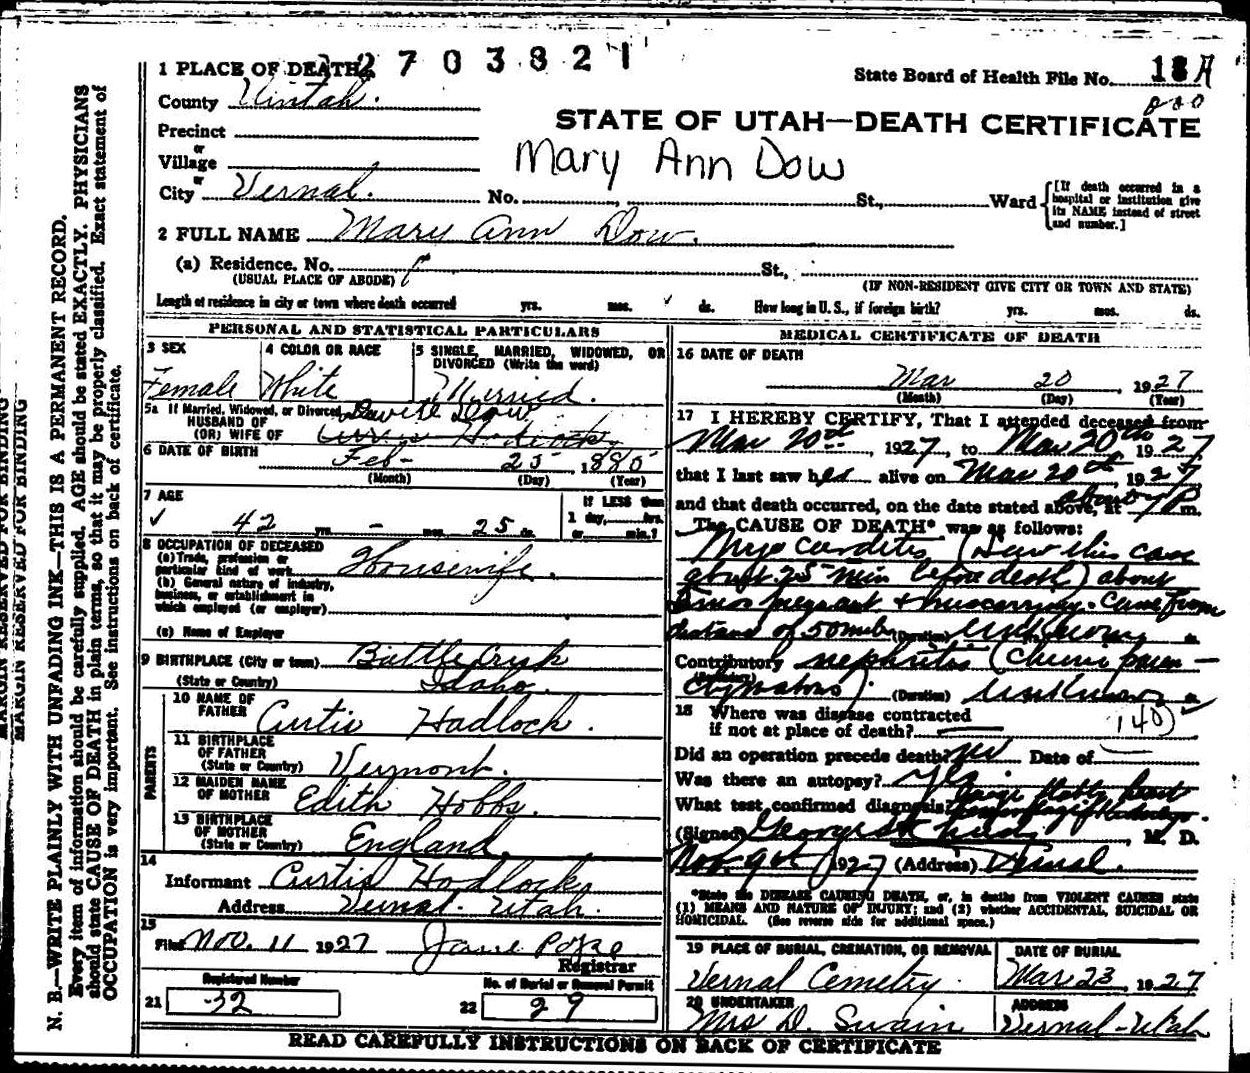 1 PLACE OF DEATH 2703821
State Board of Health File No. 18 A
County Uintah.
STATE OF UTAH—DEATH CERTIFICATE
Precinct
or
Village
Mary Ann Dow
or
City Vernal. No. , St., Ward [If death occurred in a hospital or institution give its NAME instead of street and number.]
2 FULL NAME Mary Ann Dow.
(a) Residence. No. St.,
(USUAL PLACE OF ABODE) (IF NON-RESIDENT GIVE CITY OR TOWN AND STATE)
Length of residence in city or town where death occurred yrs. mos. ds. How long in U. S., if foreign birth? yrs. mos. ds.
PERSONAL AND STATISTICAL PARTICULARS
3 SEX
Female
4 COLOR OR RACE
White
5 SINGLE, MARRIED, WIDOWED, OR DIVORCED (Write the word)
Married.
5a If Married, Widowed, or Divorced
HUSBAND OF
(OR) WIFE OF
Dow
6 DATE OF BIRTH Feb- 25, 1885
(Month) (Day) (Year)
7 AGE
42 yrs. - mos. 25 ds.
If LESS than
1 day, hrs.
or min.?
8 OCCUPATION OF DECEASED
(a) Trade, profession or
particular kind of work Housewife.
(b) General nature of industry,
business, or establishment in
which employed (or employer)
(c) Name of Employer
9 BIRTHPLACE (City or town) Battle
(State or Country) Idaho.
PARENTS
10 NAME OF
FATHER Curtis Hadlock.
11 BIRTHPLACE
OF FATHER
(State or Country) Vermont.
12 MAIDEN NAME
OF MOTHER Edith Hobbs.
13 BIRTHPLACE
OF MOTHER
(State or Country) England.
14
Informant Curtis Hadlock
Address Vernal. Utah.
15
Filed Nov. 11 1927 Jane Pope
Registrar
Registered Number
21 32
No. of Burial or Removal Permit
22 29
MEDICAL CERTIFICATE OF DEATH
16 DATE OF DEATH
Mar 20, 1927
(Month) (Day) (Year)
17 I HEREBY CERTIFY, That I attended deceased from
Mar 20th, 1927, to Mar 20th 1927
that I last saw her alive on Mar 20th, 1927
and that death occurred, on the date stated above, at about 7 P m.
The CAUSE OF DEATH* was as follows:
Myocarditis (Saw this case
about 25 min before death) about
pregnant + miscarrying. Came from
distance of 50 miles (Duration) Unknown
Contributory nephritis (
(Duration) Unknown
18 Where was disease contracted
if not at place of death? 140
Did an operation precede death? Date of
Was there an autopsy?
What test confirmed diagnosis?
(Signed) George M. D.
Nov. 9th, 1927 (Address) Vernal.
*State the DISEASE CAUSING DEATH, or, in deaths from VIOLENT CAUSES state
(1) MEANS AND NATURE OF INJURY; and (2) whether ACCIDENTAL, SUICIDAL OR
HOMICIDAL. (See reverse side for additional space.)
19 PLACE OF BURIAL, CREMATION, OR REMOVAL
Vernal Cemetry.
DATE OF BURIAL
Mar 23, 1927
20 UNDERTAKER
Mrs D. Swain
ADDRESS
Vernal-Utah
READ CAREFULLY INSTRUCTIONS ON BACK OF CERTIFICATE
MARGIN RESERVED FOR BINDING
N. B.—WRITE PLAINLY WITH UNFADING INK—THIS IS A PERMANENT RECORD.
Every item of information should be carefully supplied. AGE should be stated EXACTLY. PHYSICIANS
should state CAUSE OF DEATH in plain terms, so that it may be properly classified. Exact statement of
OCCUPATION is very important. See instructions on back of certificate.